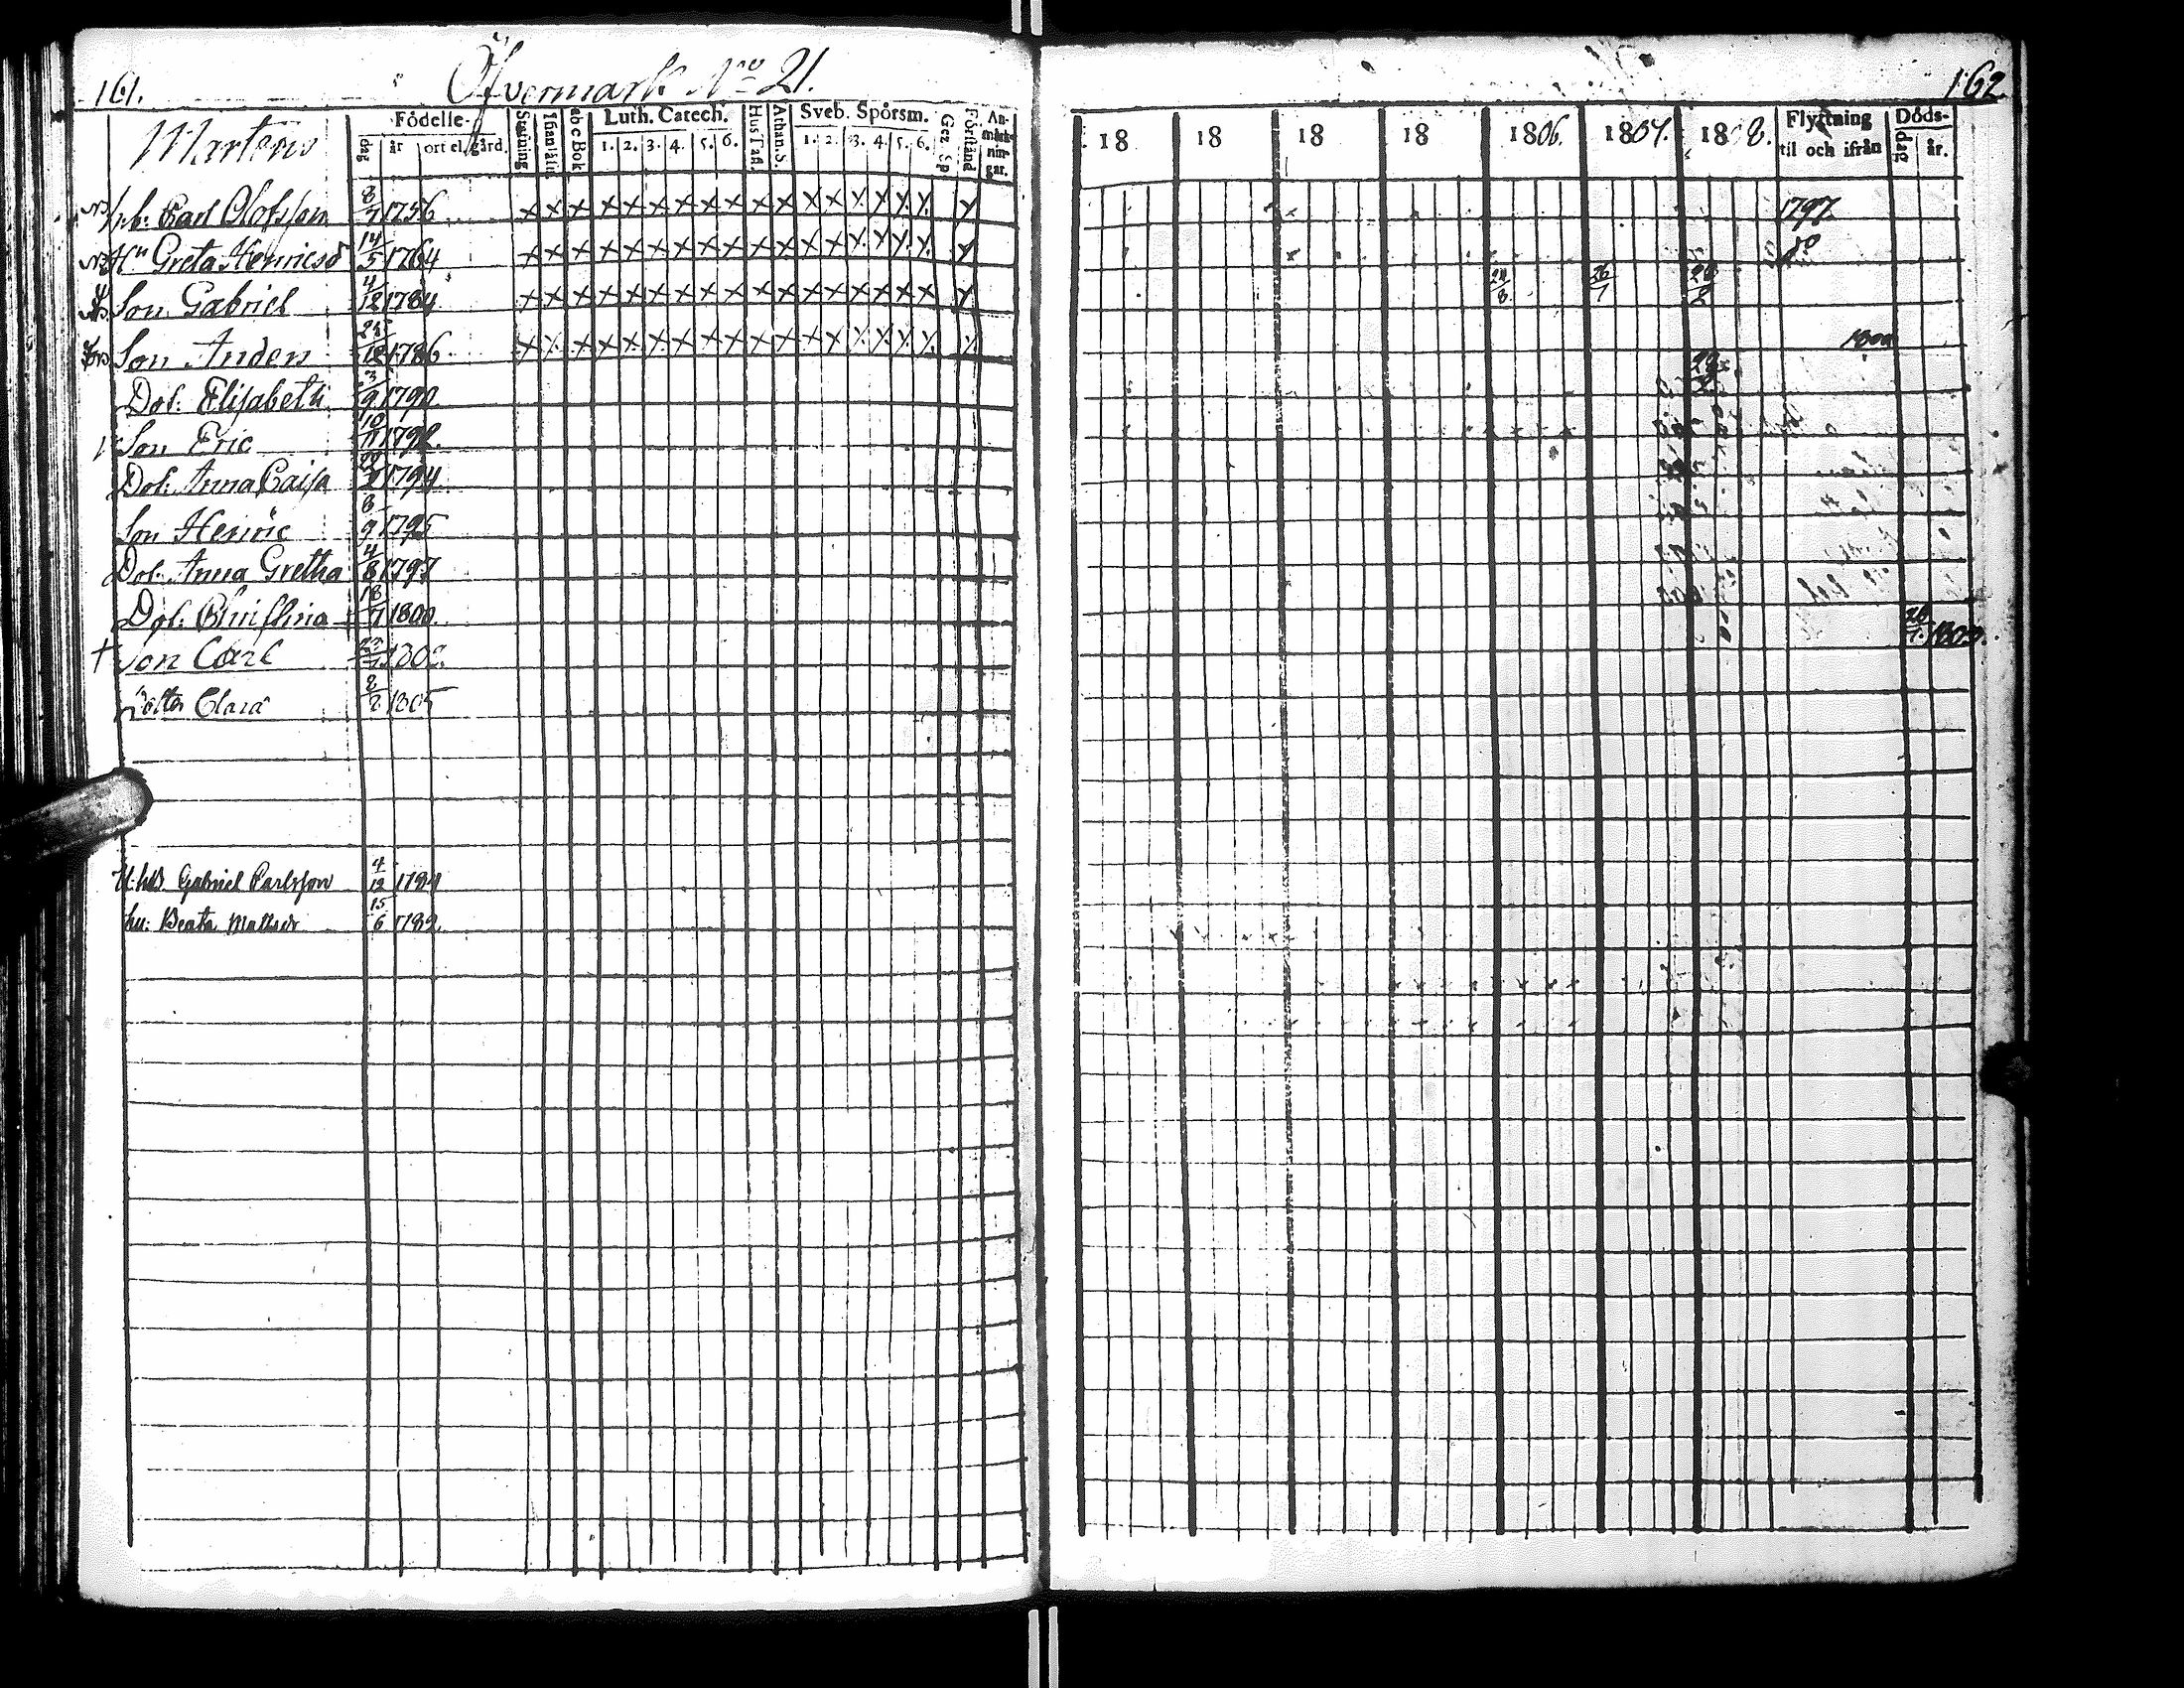 161.
Öfvermark No 21.
162.
Mårtens
Födelse-
dag år ort el. gård.
Stafning
abc Bok
Luth. Catech.
1. 2. 3. 4. 5. 6.
Hus Tafl.
Athan. S.
Sveb. Spörsm.
1. 2. 3. 4. 5. 6.
Gez. Sp
Förstånd
An-
märk-
nin-
gar.
18 18 18 18 1806. 1807. 1808.
Flyttning
til och ifrån
Döds-
dag år.
b: Carl Olofsson 8/7 1756 1797
Hu Greta Henricsd 14/5 1764 do
Son Gabriel 4/12 1784 26/7
Son Anders 12 1786 1800
Dot: Elisabeth 3/9 1790
Son Eric 10/11 1792
Dot: Anna Caisa 1794
Son Henric 8/9 1795
Dot. Anna Gretha 4/8 1797
Dot: Christina 18/7 1800.
† Son Carl 1802. 26/7
dotter Clara 1805
Gabriel Carlsson 4/12 1784
hu: Beata Mattsdr 15/6 1782